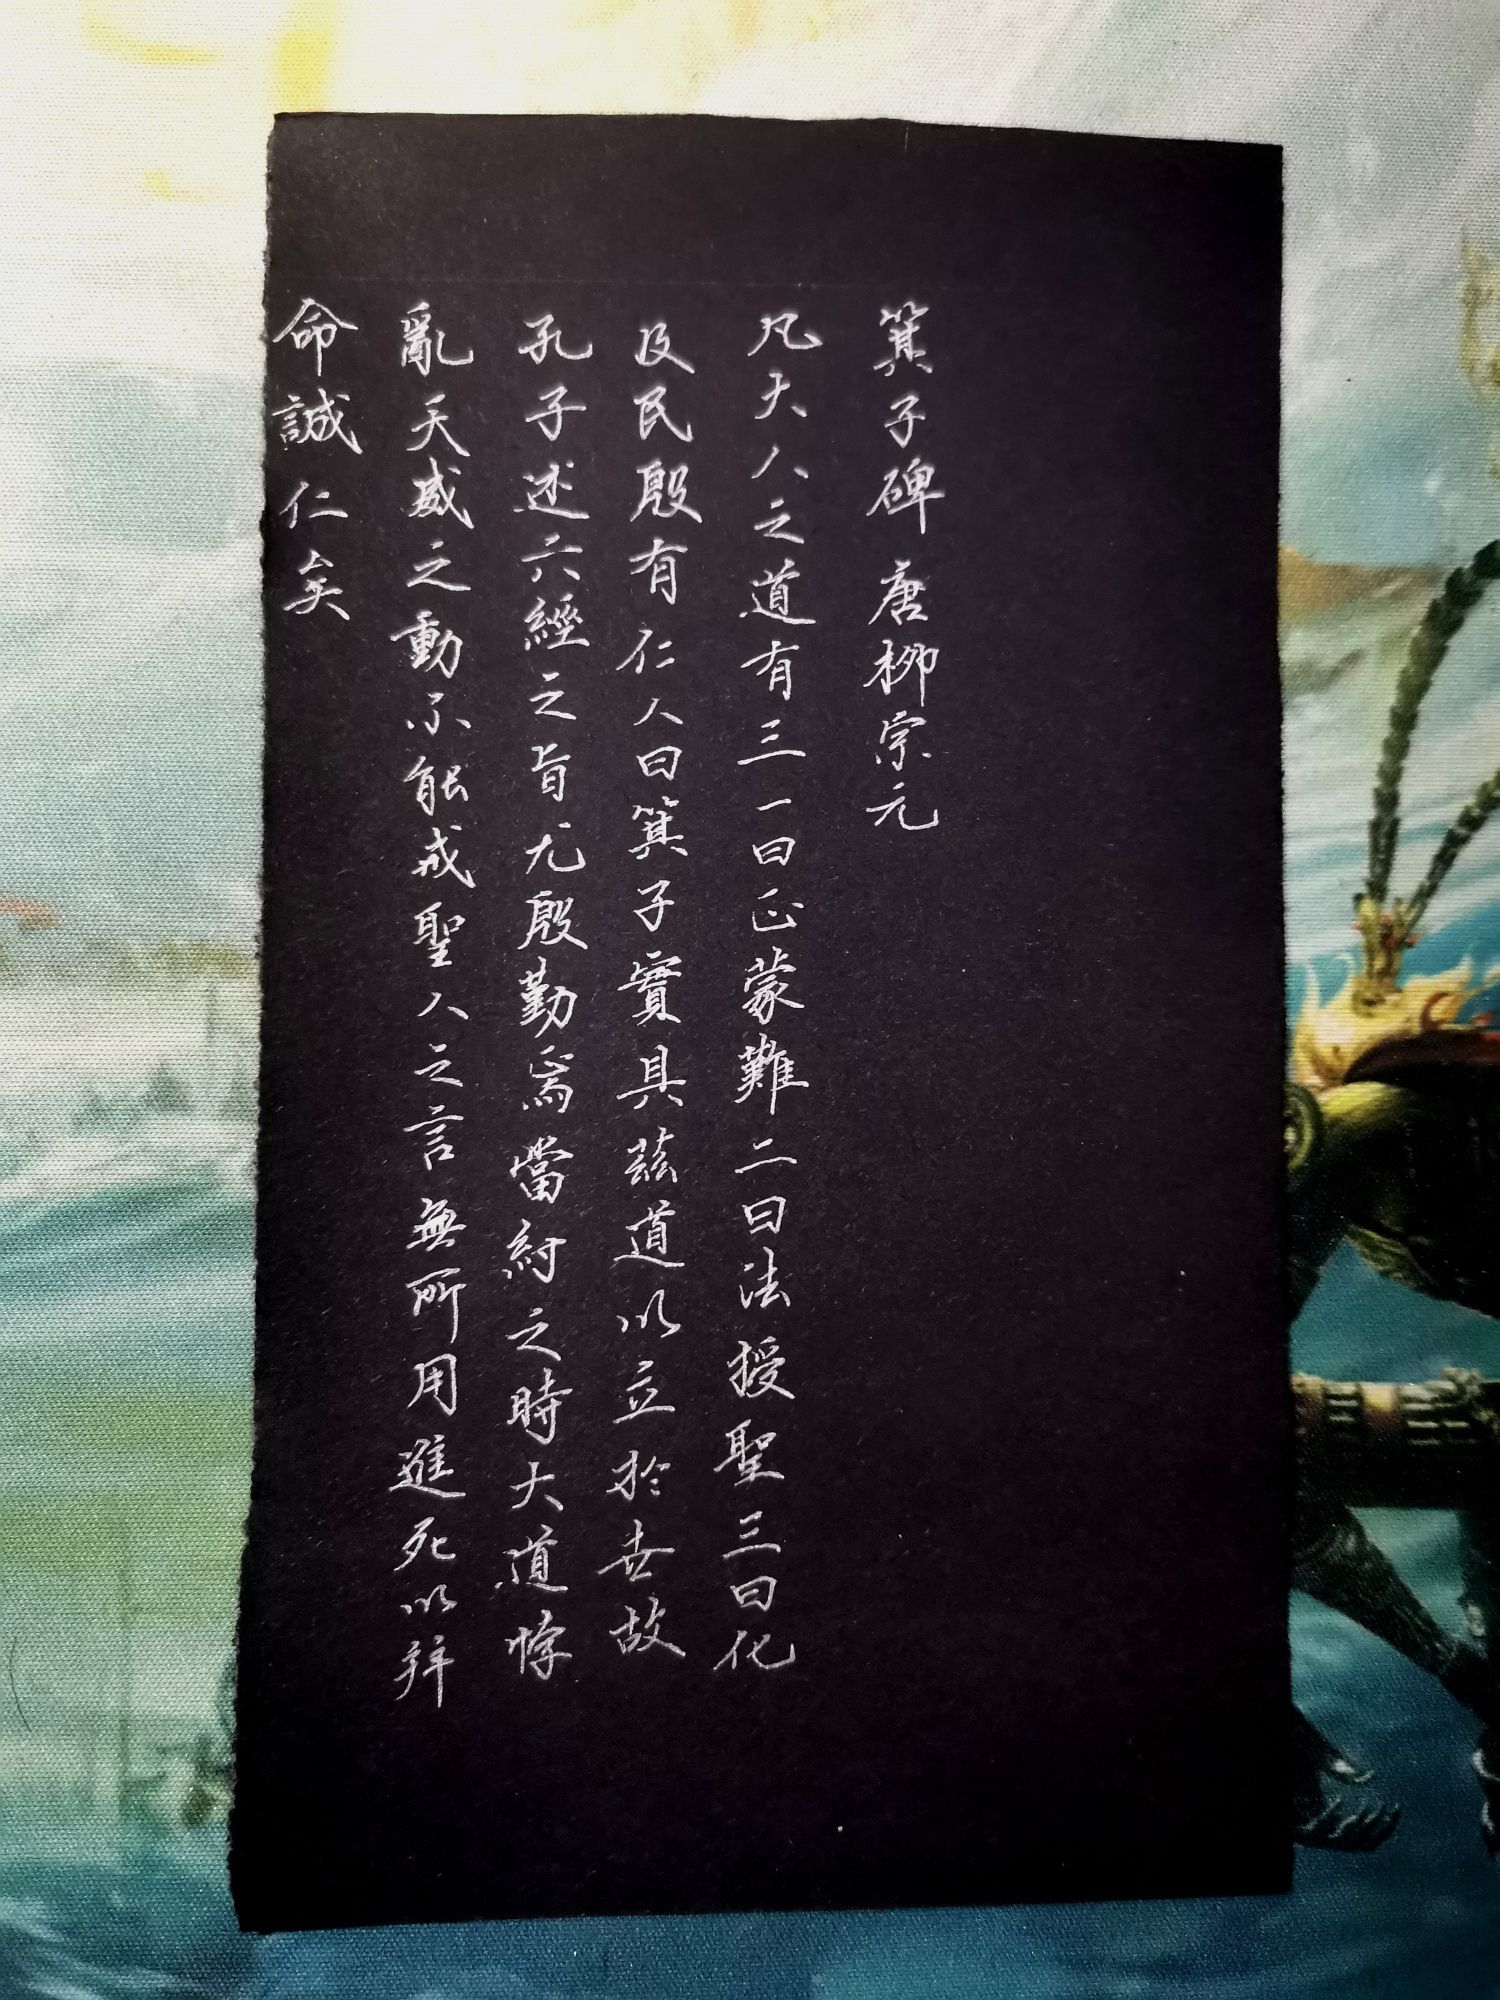 箕子碑 唐柳宗元
凡大人之道有三一曰正蒙難二曰法授聖三曰化
及民殷有仁人曰箕子實具茲道以立於世故
孔子述六經之旨尤殷勤焉當紂之時大道悖
亂天威之動不能戒聖人之言無所用進死以并
命誠仁矣